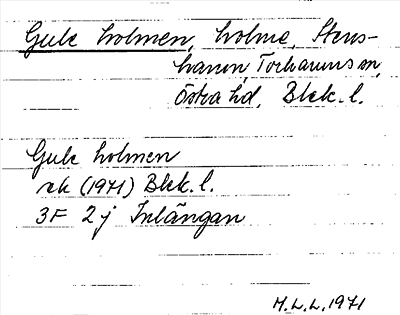 Gule holmen, holme, Stens-
hamn, Torhamns sn,
Östra hd, Blek. l.
Gule holmen
rk (1971) Blek. l.
3F 2j Inlängan
M.L.L. 1971